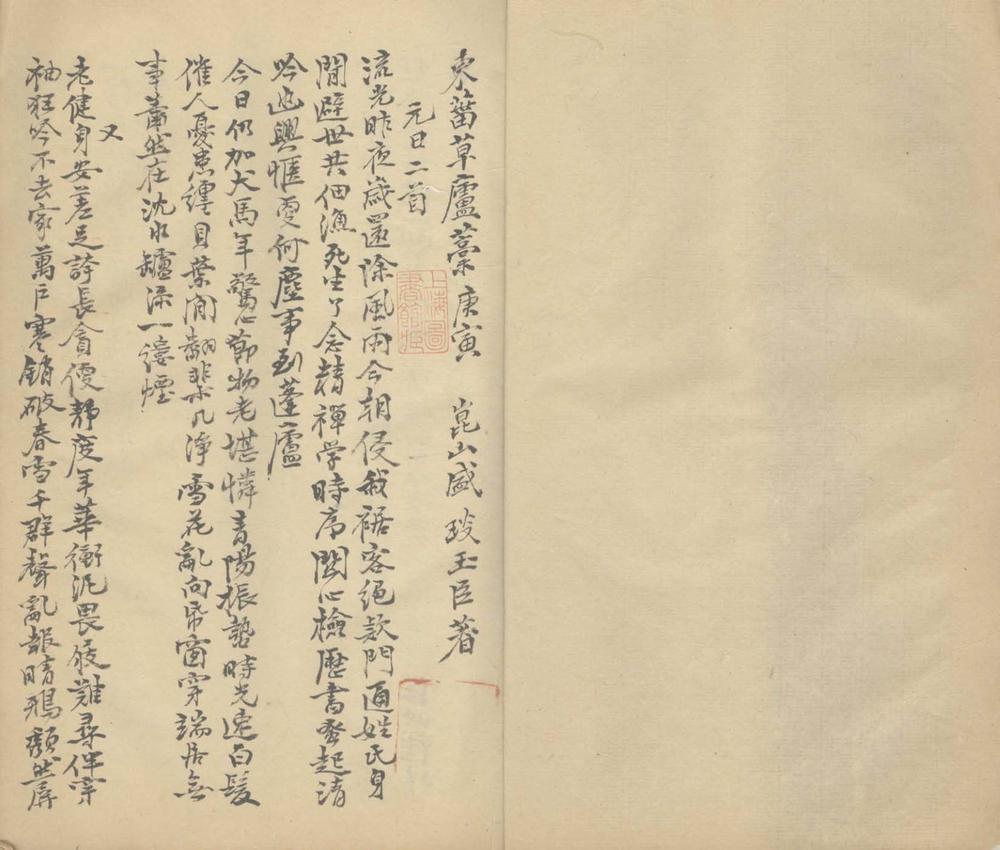 東菑草廬藁 庚寅 崑山盛琰玉臣著
元日二首
流光昨夜歲還除風雨今朝侵敝裾客絕款門通姓氏身
閒避世共佃漁死生了念精禪学時序關心檢歷書發起清
吟逸興愜更何塵事到蓬廬
今日仍加犬馬年驚心節物老堪憐青陽振蟄時光速白髮
催人憂患纏貝葉閒翻棐几淨雪花亂向帋窗穿端居無
事蕭然在沈水罏添一縷煙
又
老健身安差足誇長貪優靜度年華衝泥畏屐難尋伴穿
袖狂吟不去家萬戶寒銷破春雪千群聲亂報晴鴉頹然屏
上海圖書館藏